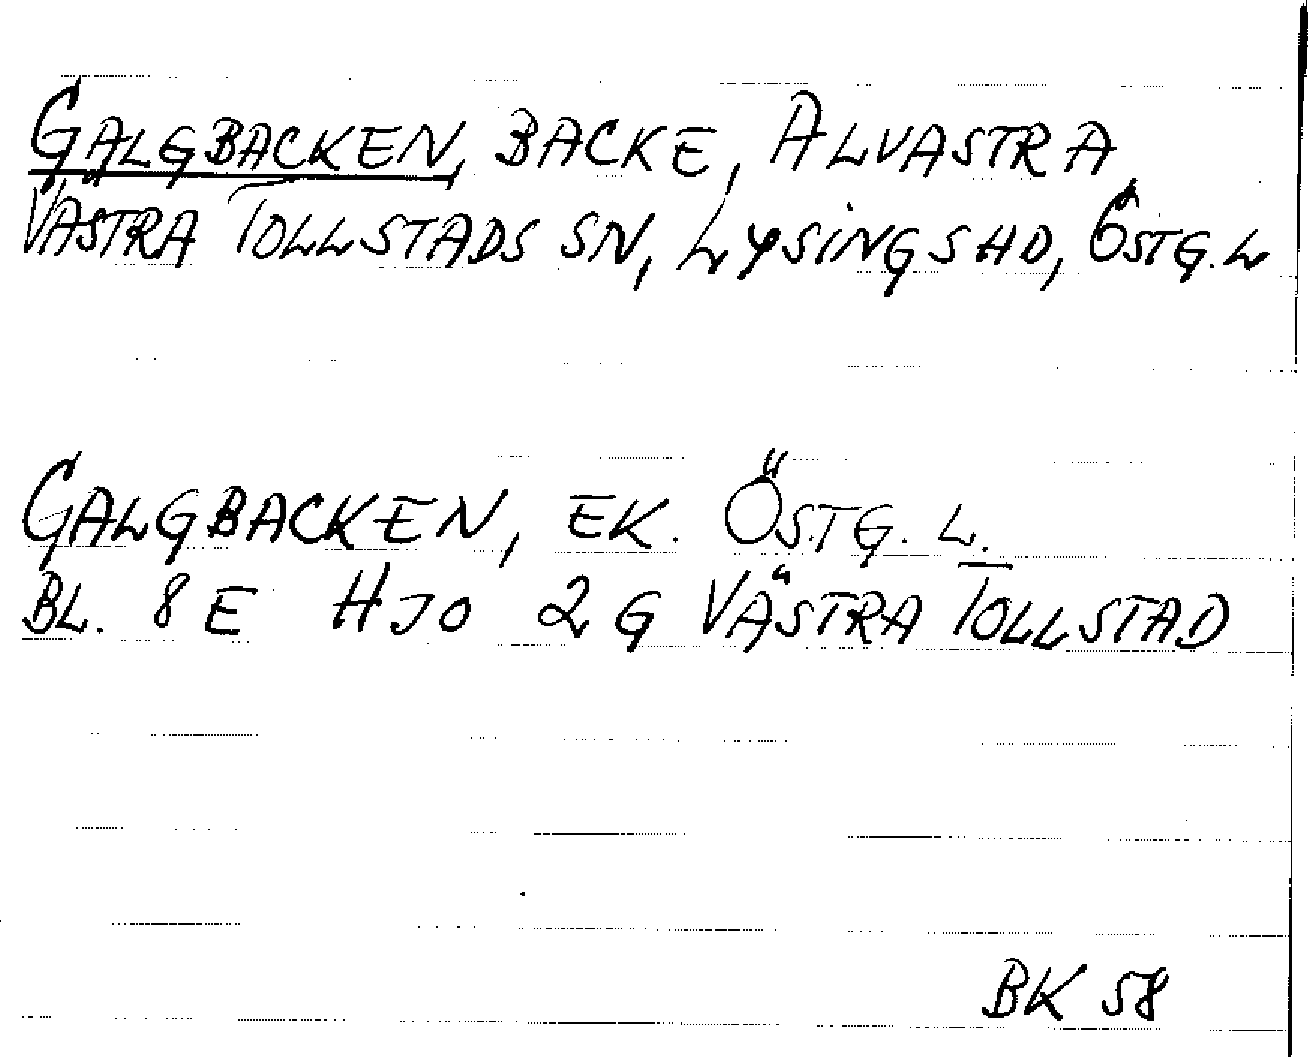 GALGBACKEN, BACKE, ALVASTRA,
VÄSTRA TOLLSTADS SN, LYSINGS HD, ÖSTG. L
GALGBACKEN, EK. ÖSTG. L.
BL. 8 E HJO 2 G VÄSTRA TOLLSTAD
BK 58